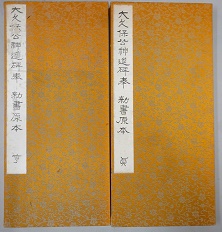 大久保公神道碑奉 勅書原本 亨
大久保公神道碑奉 勅書原本 貞